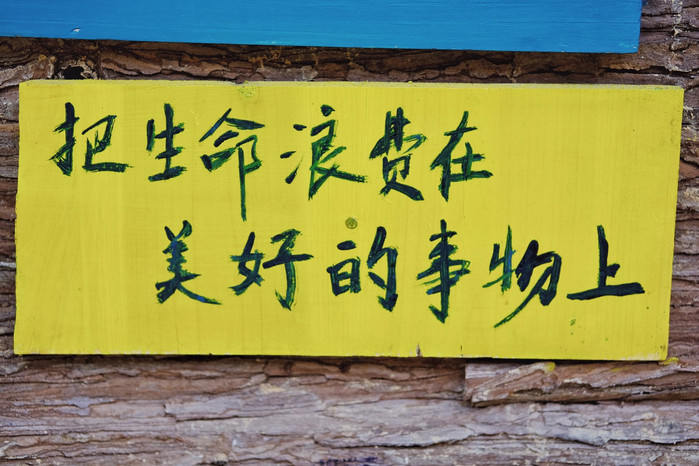 把生命浪费在
美好的事物上